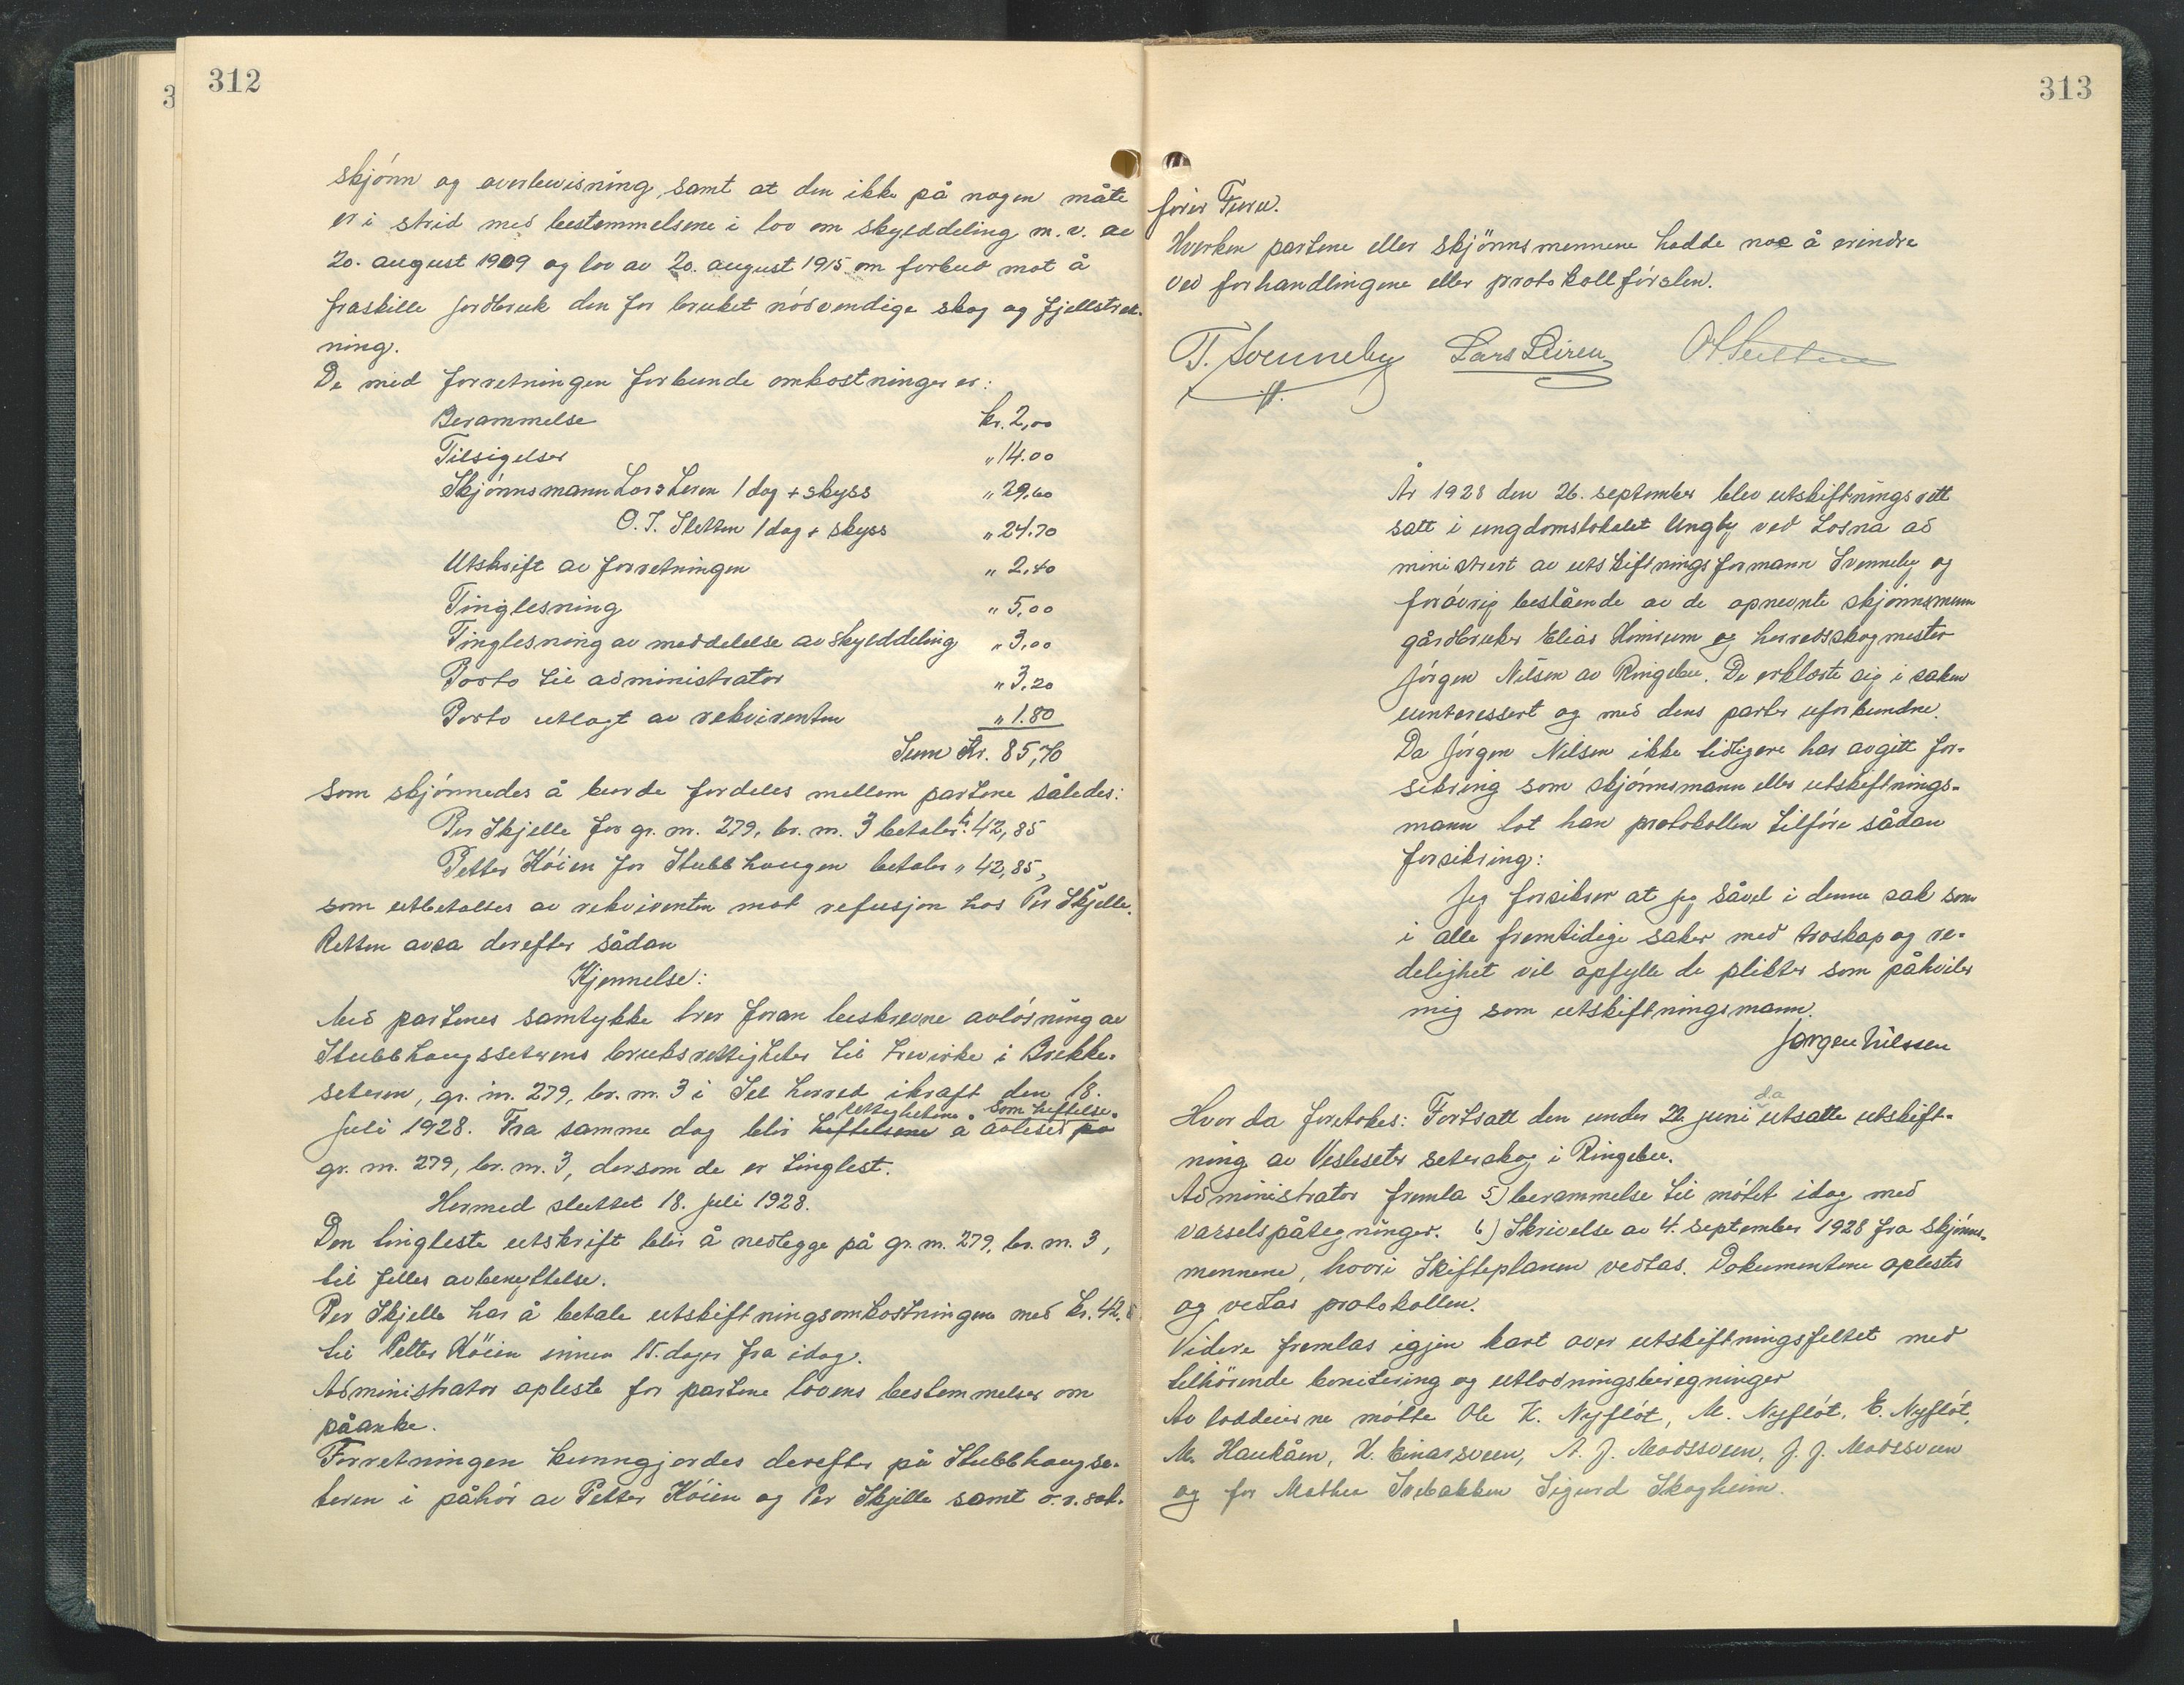 312
skjónn og overbevisning, samt at den ikke på nogen måte
er i strid med bestemmelsene i lov om skylddeling m.v. av
20. august 1909 og lov av 20. august 1915 om forbud mot å
fraskille jordbruk den for bruket nódvendige skog og fjellstrek-
ning.
De med forretningen forbunde omkostninger er:
Berammelse kr. 2,00
Tilsigelser " 14.00
Skjónnsmann Lars Leren 1 dag + skyss " 29,60
O. T. Sletten 1 dag + skyss " 24.70
Utskrift av forretningen " 2,40
Tinglesning " 5,00
Tinglesning av meddelelse av skylddeling " 3,00
Porto til administrator " 3,20
Porto utlagt av rekvirenten " 1.80
Sum Kr. 85,70
som skjónnedes å burde fordeles mellem partene således:
Per Skjelle for gr. nr. 279, br. nr. 3 betaler kr. 42,85
Petter Kóien for Stubbhaugen betaler " 42,85,
som utbetaltes av rekvirenten mot refusjon hos Per Skjelle.
Retten avsa derefter sådan
Kjennelse:
Med partenes samtykke trer foran beskrevne avlósning av
Stubbhaugseterens bruksrettigheter til trevirke i Brekke-
seteren, gr. nr. 279, br. nr. 3 i Sel herred ikraft den 18.
rettighetene som heftelse
juli 1928. Fra samme dag blir heftelsene å avleses på
gr. nr. 279, br. nr. 3, dersom de er tinglest.
Hermed sluttet 18. juli 1928.
Den tingleste utskrift blir å nedlegge på gr. nr. 279, br. nr. 3,
til felles avbenyttelse.
Per Skjelle har å betale utskiftningsomkostningene med kr. 42,8
til Petter Köien innen 15. dager fra idag.
Administrator opleste for partene lovens bestemmelser om
påanke.
Forretningen kunngjordes derefter på Stubbhaugse-
teren i påhór av Petter Kóien og Per Skjelle samt o.r.sak-
313
fórer Furu.
Hverken partene eller skjönnsmennene hadde noe å erindre
ved forhandlingene eller protokollfórslen.
T. Svenneby Lars Leiren O T Sletten
År 1928 den 26. september blev utskiftningsrett
satt i ungdomslokalet Ungby ved Losna ad
ministrert av utskiftningsformann Svenneby og
foróvrig bestående av de opnevnte skjónnsmenn
gårdbruker Elias Himrum og herredsskogmester
Jórgen Nilsen av Ringebu. De erklærte sig i saken
uinteressert og med dens parter uforbundne.
Da Jórgen Nilsen ikke tidligere har avgitt for-
sikring som skjónnsmann eller utskiftnings-
mann lot han protokollen tilfóre sådan
forsikring:
Jeg forsikrer at jeg såvel i denne sak som
i alle fremtidige saker med troskap og re-
delighet vil opfylle de plikter som påhviler
mig som utskiftningsmann.
Jørgen Nilssen
d.a
Hvor da foretokes: Fortsatt den under 22. juni utsatte utskift-
ning av Vesleseter seterskog i Ringebu.
Administrator fremla 5) berammelse til mótet idag med
varselspåtegninger. 6) Skrivelse av 4. september 1928 fra skjónns-
mennene, hvori skifteplanen vedtas. Dokumentene oplestes
og vedlas protokollen.
Videre fremlas igjen kart over utskiftningsfeltet med
tilhörende bonitering og utlodningsberegninger
Av loddeierne mótte Ole K. Nyflót, M. Nyflót, E. Nyflót,
M. Haukåen, H. Einarsveen, A. J. Madssveen, J. J. Madssveen
og for Mathea Svebakken Sigurd Skogheim.